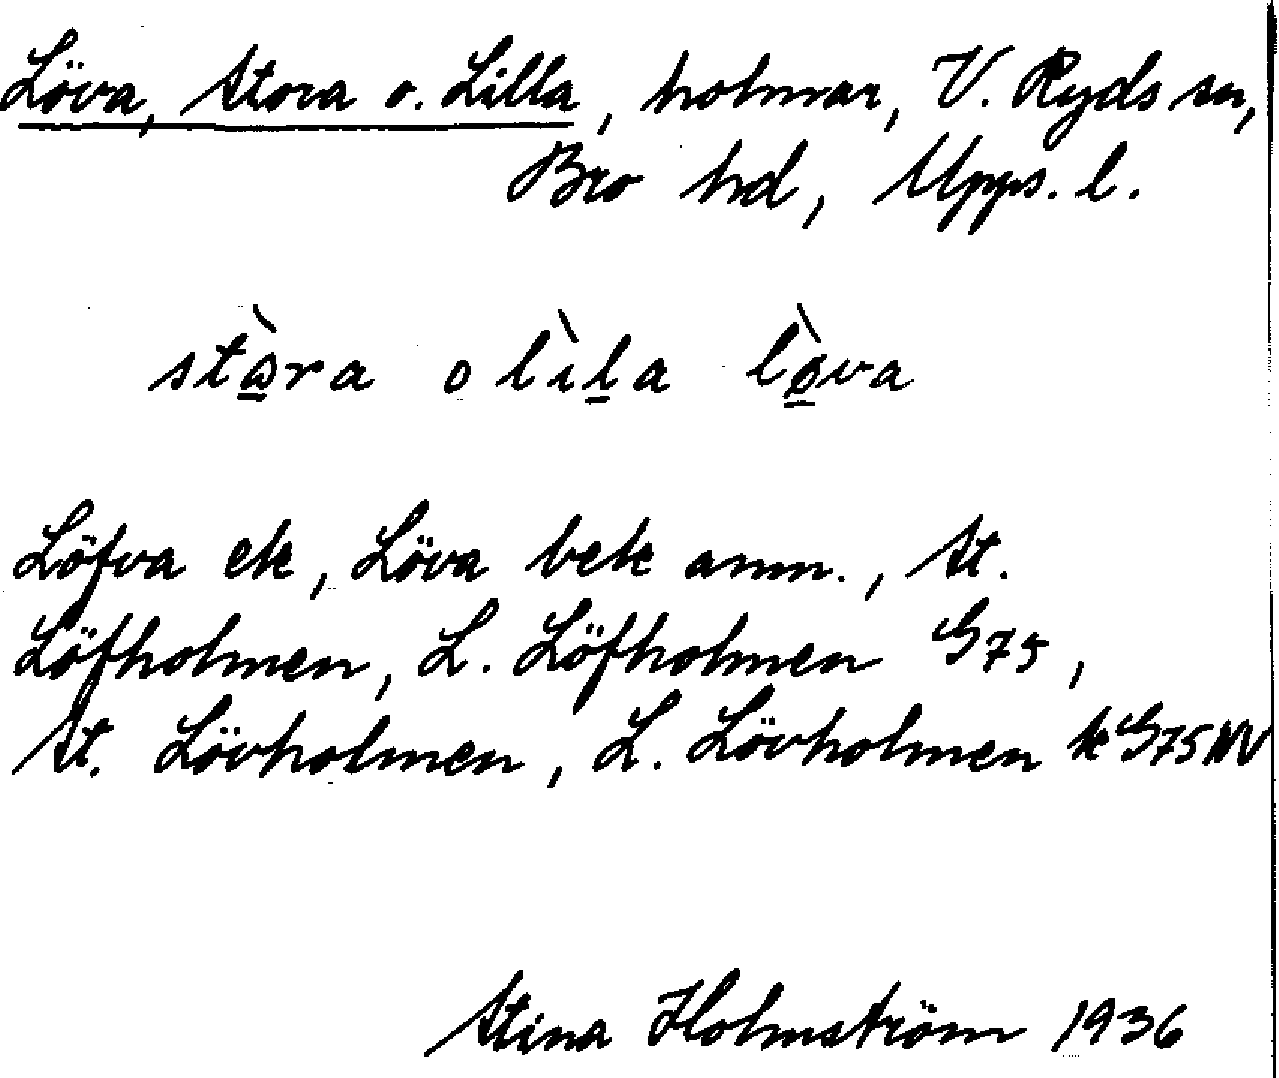 Löva, Stora o. Lilla, holmar, V. Ryds sn,
Bro hd, Upps. l.
stɷ̀ra o lìla lø̀va
Löfva ek, Löva bek anm., St.
Löfholmen, L. Löfholmen G75,
St. Lövholmen, L. Lövholmen kG75NV
Stina Holmström 1936